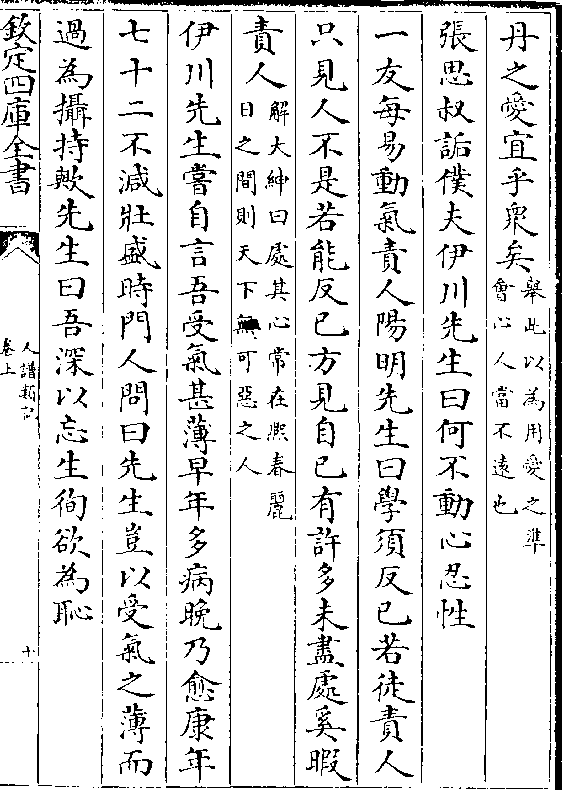 丹之愛宜乎衆矣舉此以為用愛之準
會心人當不遠也
張思叔詬僕夫伊川先生曰何不動心忍性
一友每易動氣責人陽明先生曰學須反己若徒責人
只見人不是若能反己方見自己有許多未盡處奚暇
責人解大紳曰處其心常在熙春麗
日之間則天下無可惡之人
伊川先生嘗自言吾受氣甚薄早年多病晚乃愈康年
七十二不減壯盛時門人問曰先生豈以受氣之薄而
過為攝持歟先生曰吾深以忘生徇欲為恥
欽定四庫全書
人譜類記
卷上
十